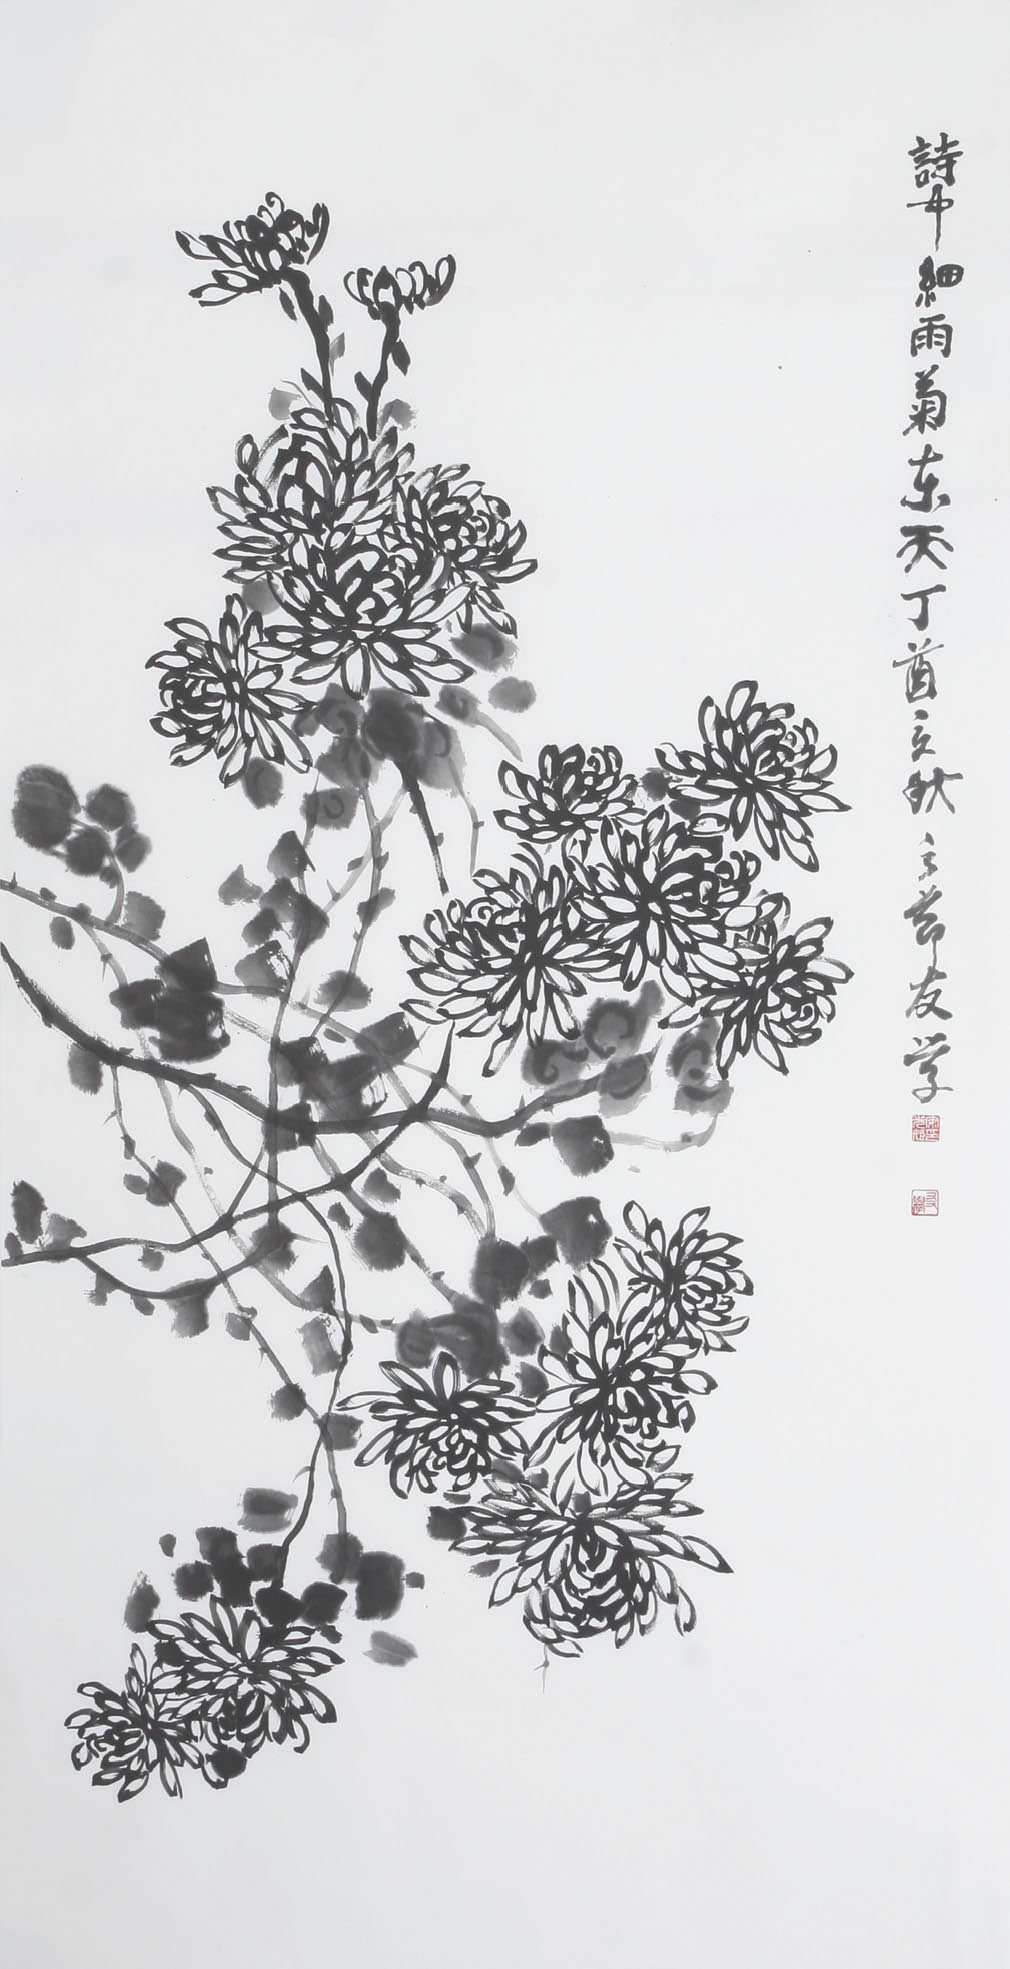 詩中細雨菊東天丁酉立秋之節友学